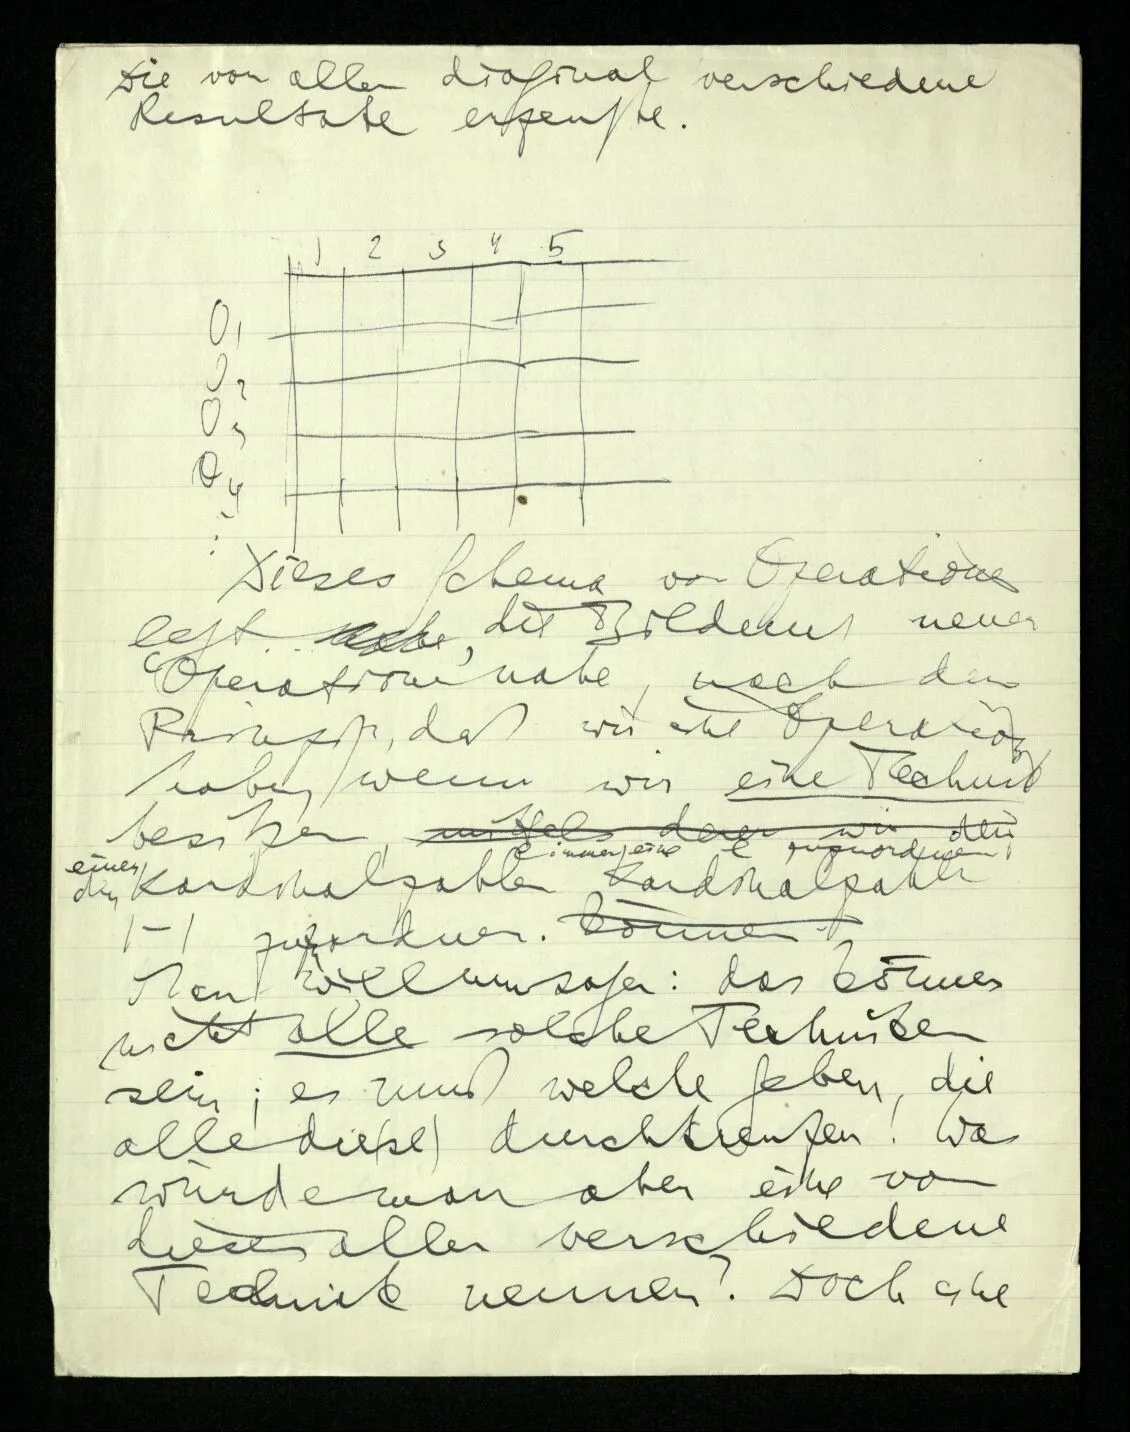 Die von allen diagonal verschiedene
Resultate erzeugte.
1 2 3 4 5
O1
O2
O3
O4
⋮
Dieses Schema von Operationen
legt nahe, das Bilden neuer
Operationen nahe, nach dem
Prinzip, daß wir eine Operation
haben, wenn wir eine Technik
besitzen mittels deren wir den
immer eine zuzuordnen
einer
den Kardinalzahlen Kardinalzahlen
1-1 zuzuordnen. können
Man will nun sagen: das können
nicht alle solche Techniken
sein; es muß welche geben, die
alle diese durchkreuzen! Was
würde man aber eine von
diesen allen verschiedene
Technik nennen? Doch eine